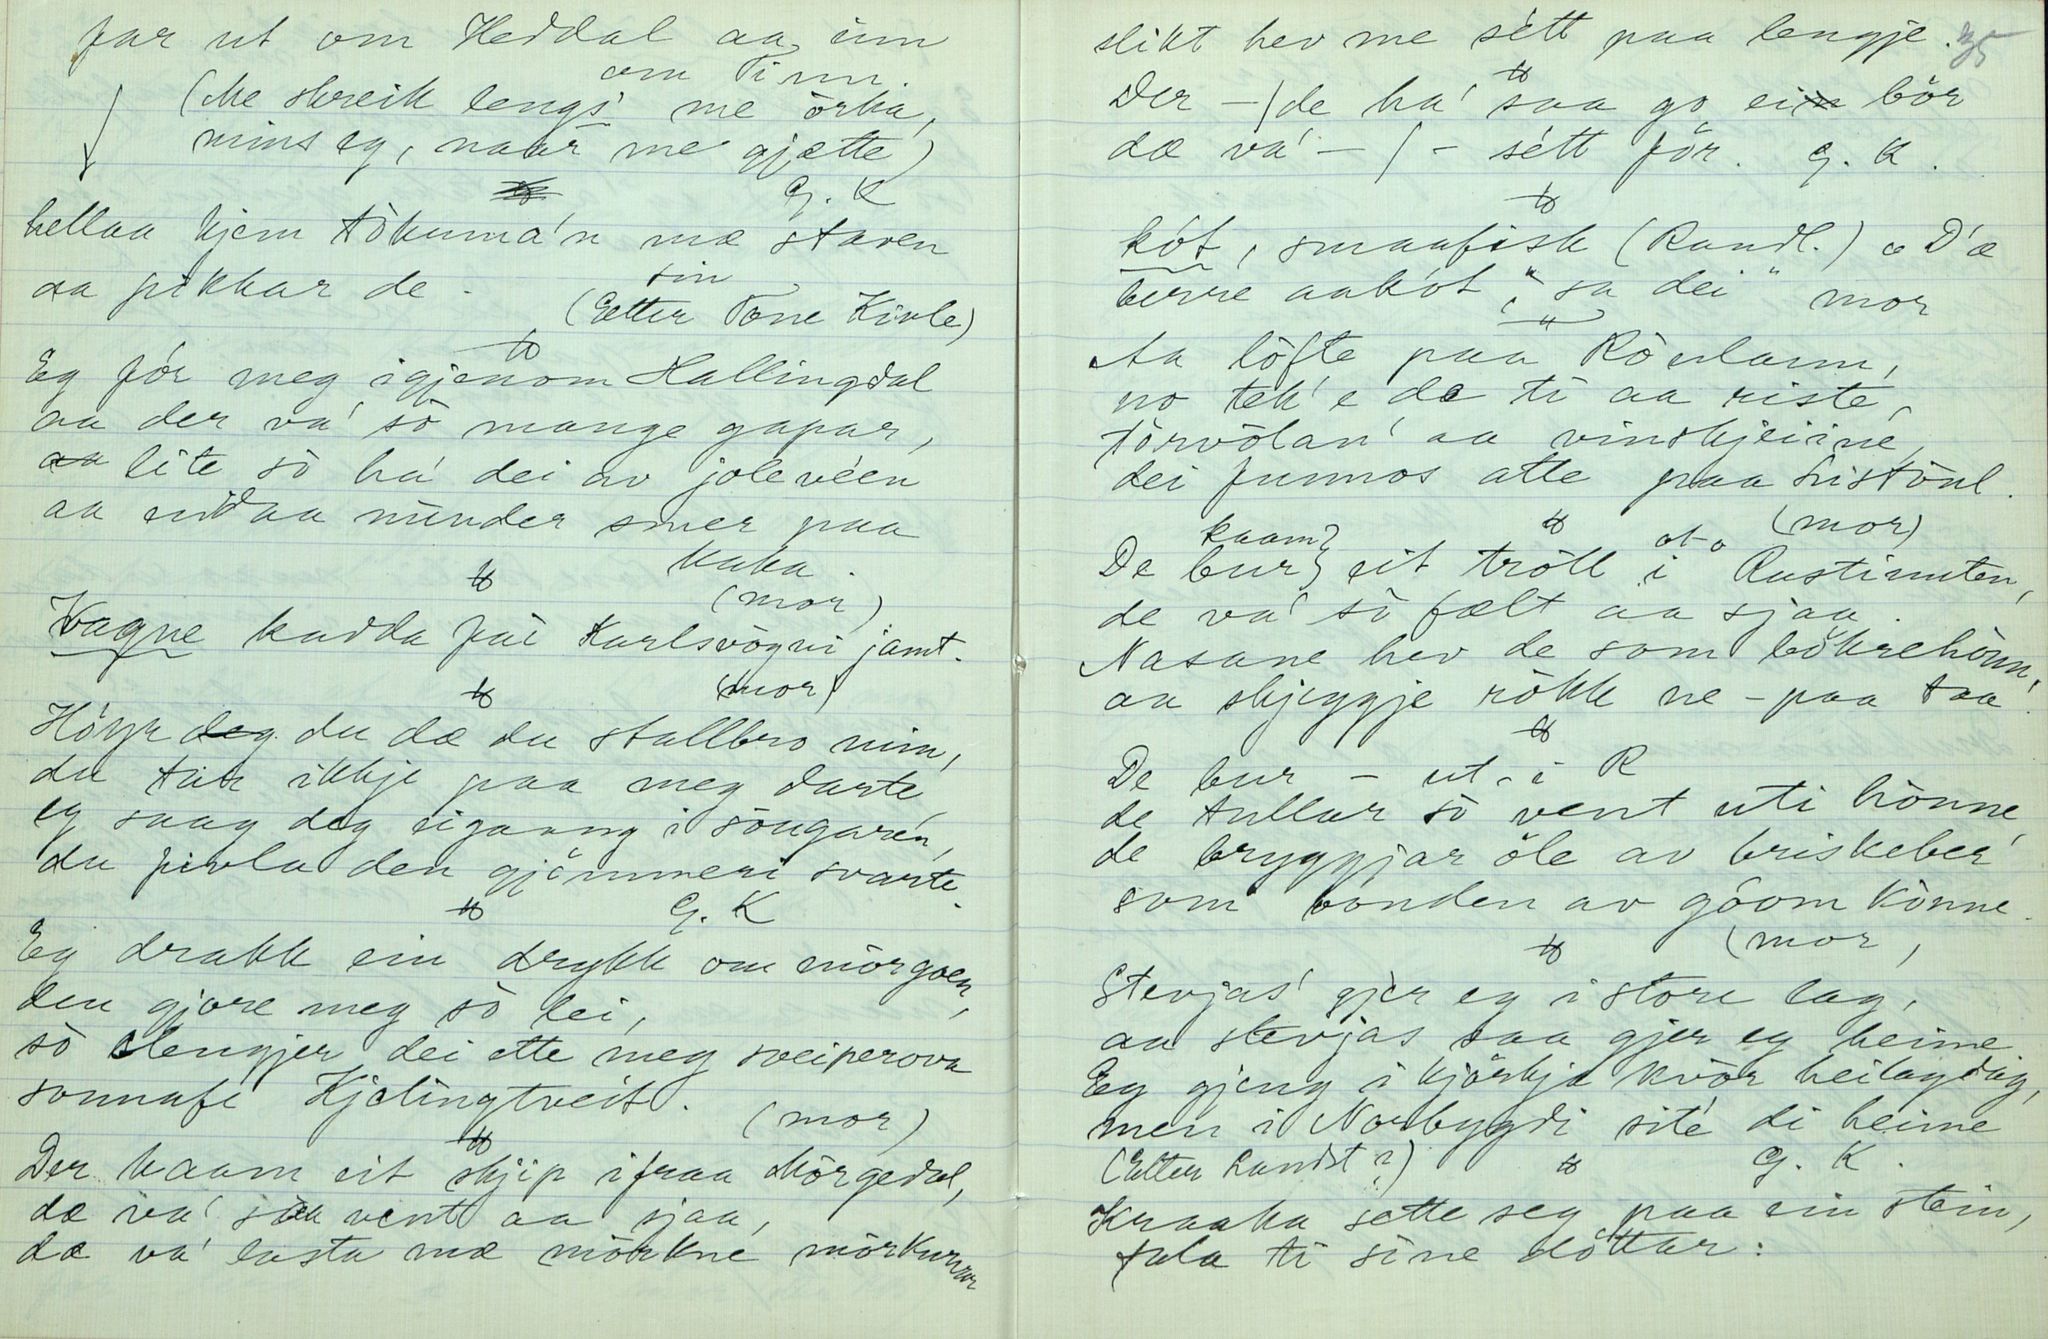 far ut om Heddal aa inn
om Tinn.
(Me skreik lengs' me örka,
mins eg, naar me gjætte)
G. K
hellaa kjem tòkumá'n mæ staven
sin
aa pikkar de.
(Etter Tone Kivle)
Eg fór meg igjenom Hallingdal
aa der va' sò mange gapar,
lite sò há dei av jolevéen
aa endaa minder smer paa
kaka.
(mor)
Vagne kadda fai Karlsvògni jamt.
(mor)
Höyr du dæ du stallbro min,
du tar ikkje paa meg darte,
eg saag deg eigaang i söugarén,
du pivla den gjömmeri svarte.
G. K
Eg drakk ein drykk om mòrgoen,
den gjore meg sò lei,
sò slengjer dei ette meg sveiperova
sonnafe Kjelingtveit.
(mor)
Der kaam eit skjip ifraa Mòrgedal,
dæ va' saa vent aa sjaa,
dæ va' lasta mæ mòrkne mòrkurnar
slikt hev me sétt paa lengje.
35
Der – / de ha' saa go ein bör
dæ va' – / – sétt för. G. K.
kót, smaafisk (Raudl.) "D'æ
berre aakót", sa dei" mor
Aa löfte paa Ròulann,
no tek' e de ti aa riste,
tòrvòlan' aa vinskjeiine,
dei funnos atte paa Listòul.
(mor)
kaam?
ut
De bur eit tròll i Rustinuten,
de va' sò fælt aa sjaa.
Nasane hev de som bökrehònn,
aa skjeggje rökk ne-paa taa.
De bur – ut i R
de tullar sò vent uti hònne,
de bryggjar öle av briskeber'
som bonden av góom kònne.
(mor)
Stevjas' gjer eg i store lag,
aa stevjas saa gjer eg heime
Eg gjeng i kjörkje kvòr heilagdag,
men i Norbygdi site' di heime
(Etter Landst?) G. K.
Kraaka sette seg paa ein stein,
tala ti sine dòttar: